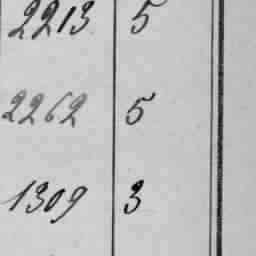 2213 5
2262 5
1309 3